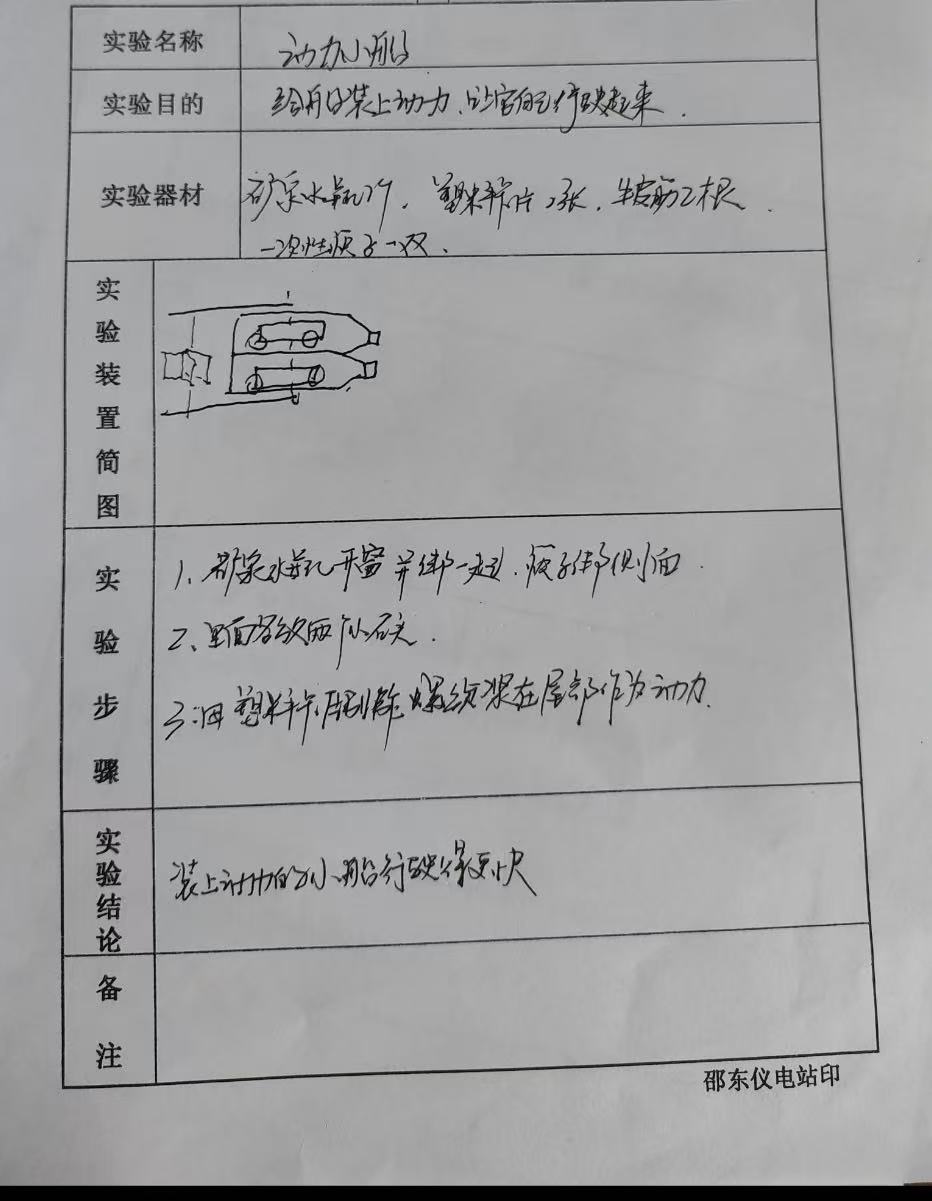 实验名称 动力小船
实验目的 给船装上动力,让它自己行驶起来.
实验器材 矿泉水瓶2个,塑料片2张,牛皮筋2根.
一次性筷子一双.
实验装置简图
实验步骤
1、矿泉水瓶开窗并绑一起,筷子绑侧面.
2、里面各放两个小石头.
3、用塑料片制作螺纹桨在尾部作为动力.
实验结论 装上动力的小船行驶得更快
备注
邵东仪电站印